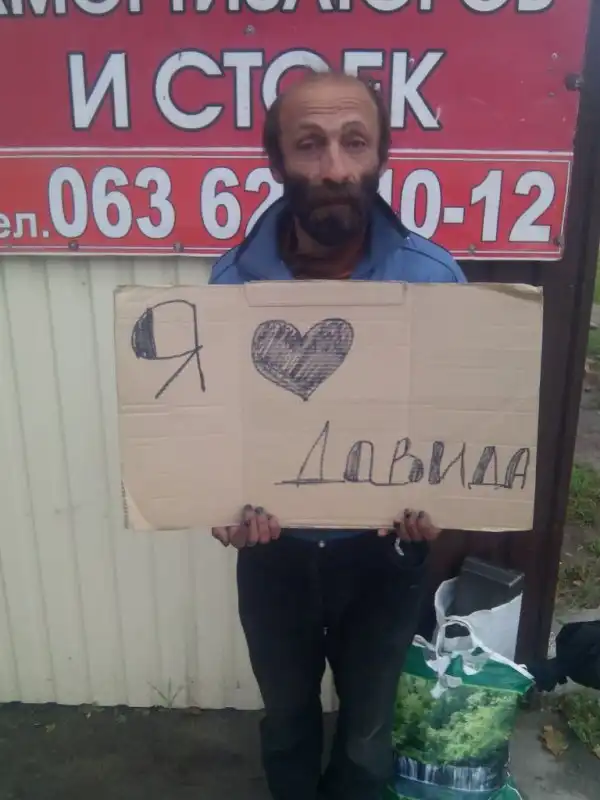 АМОРТИЗАТОРОВ
И СТОЕК
ел.063 62 10-12
Я ♥
ДАВИДА